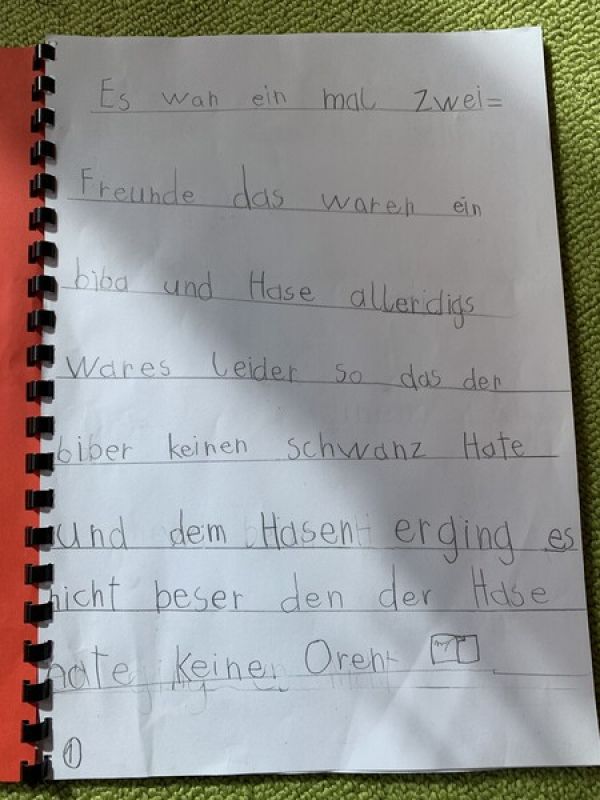 Es wan ein mal zwei=
Freunde das waren ein
biba und Hase alleridigs
wares leider so das der
biber keinen schwanz Hate
und dem Hasen erging es
nicht beser den der Hase
hate keine Oren
1